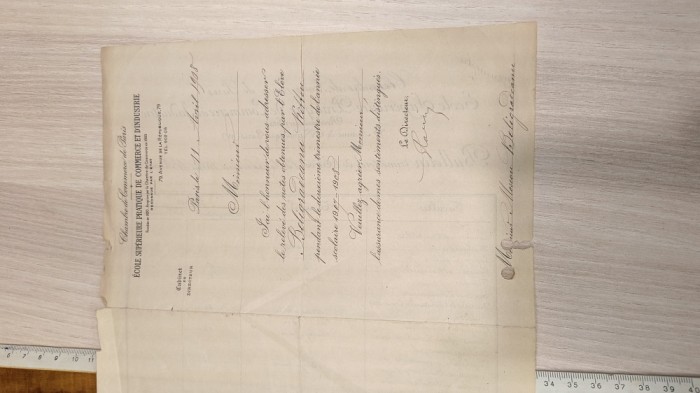 Chambre de Commerce de Paris
ÉCOLE SUPÉRIEURE PRATIQUE DE COMMERCE ET D'INDUSTRIE
79, AVENUE DE LA RÉPUBLIQUE, 79
Cabinet
du
DIRECTEUR
Paris le 11 Avril 1908
Monsieur
J'ai l'honneur de vous adresser
le relevé des notes obtenues par l'Elève
Beligratceanu
pendant le deuxième trimestre de l'année
scolaire 1907-1908
Veuillez agréer, Monsieur
l'assurance de mes sentiments distingués.
Le Directeur,
Monsieur Beligratceanu
5 6 7 8 9 10 11
34 35 36 37 38 39 40